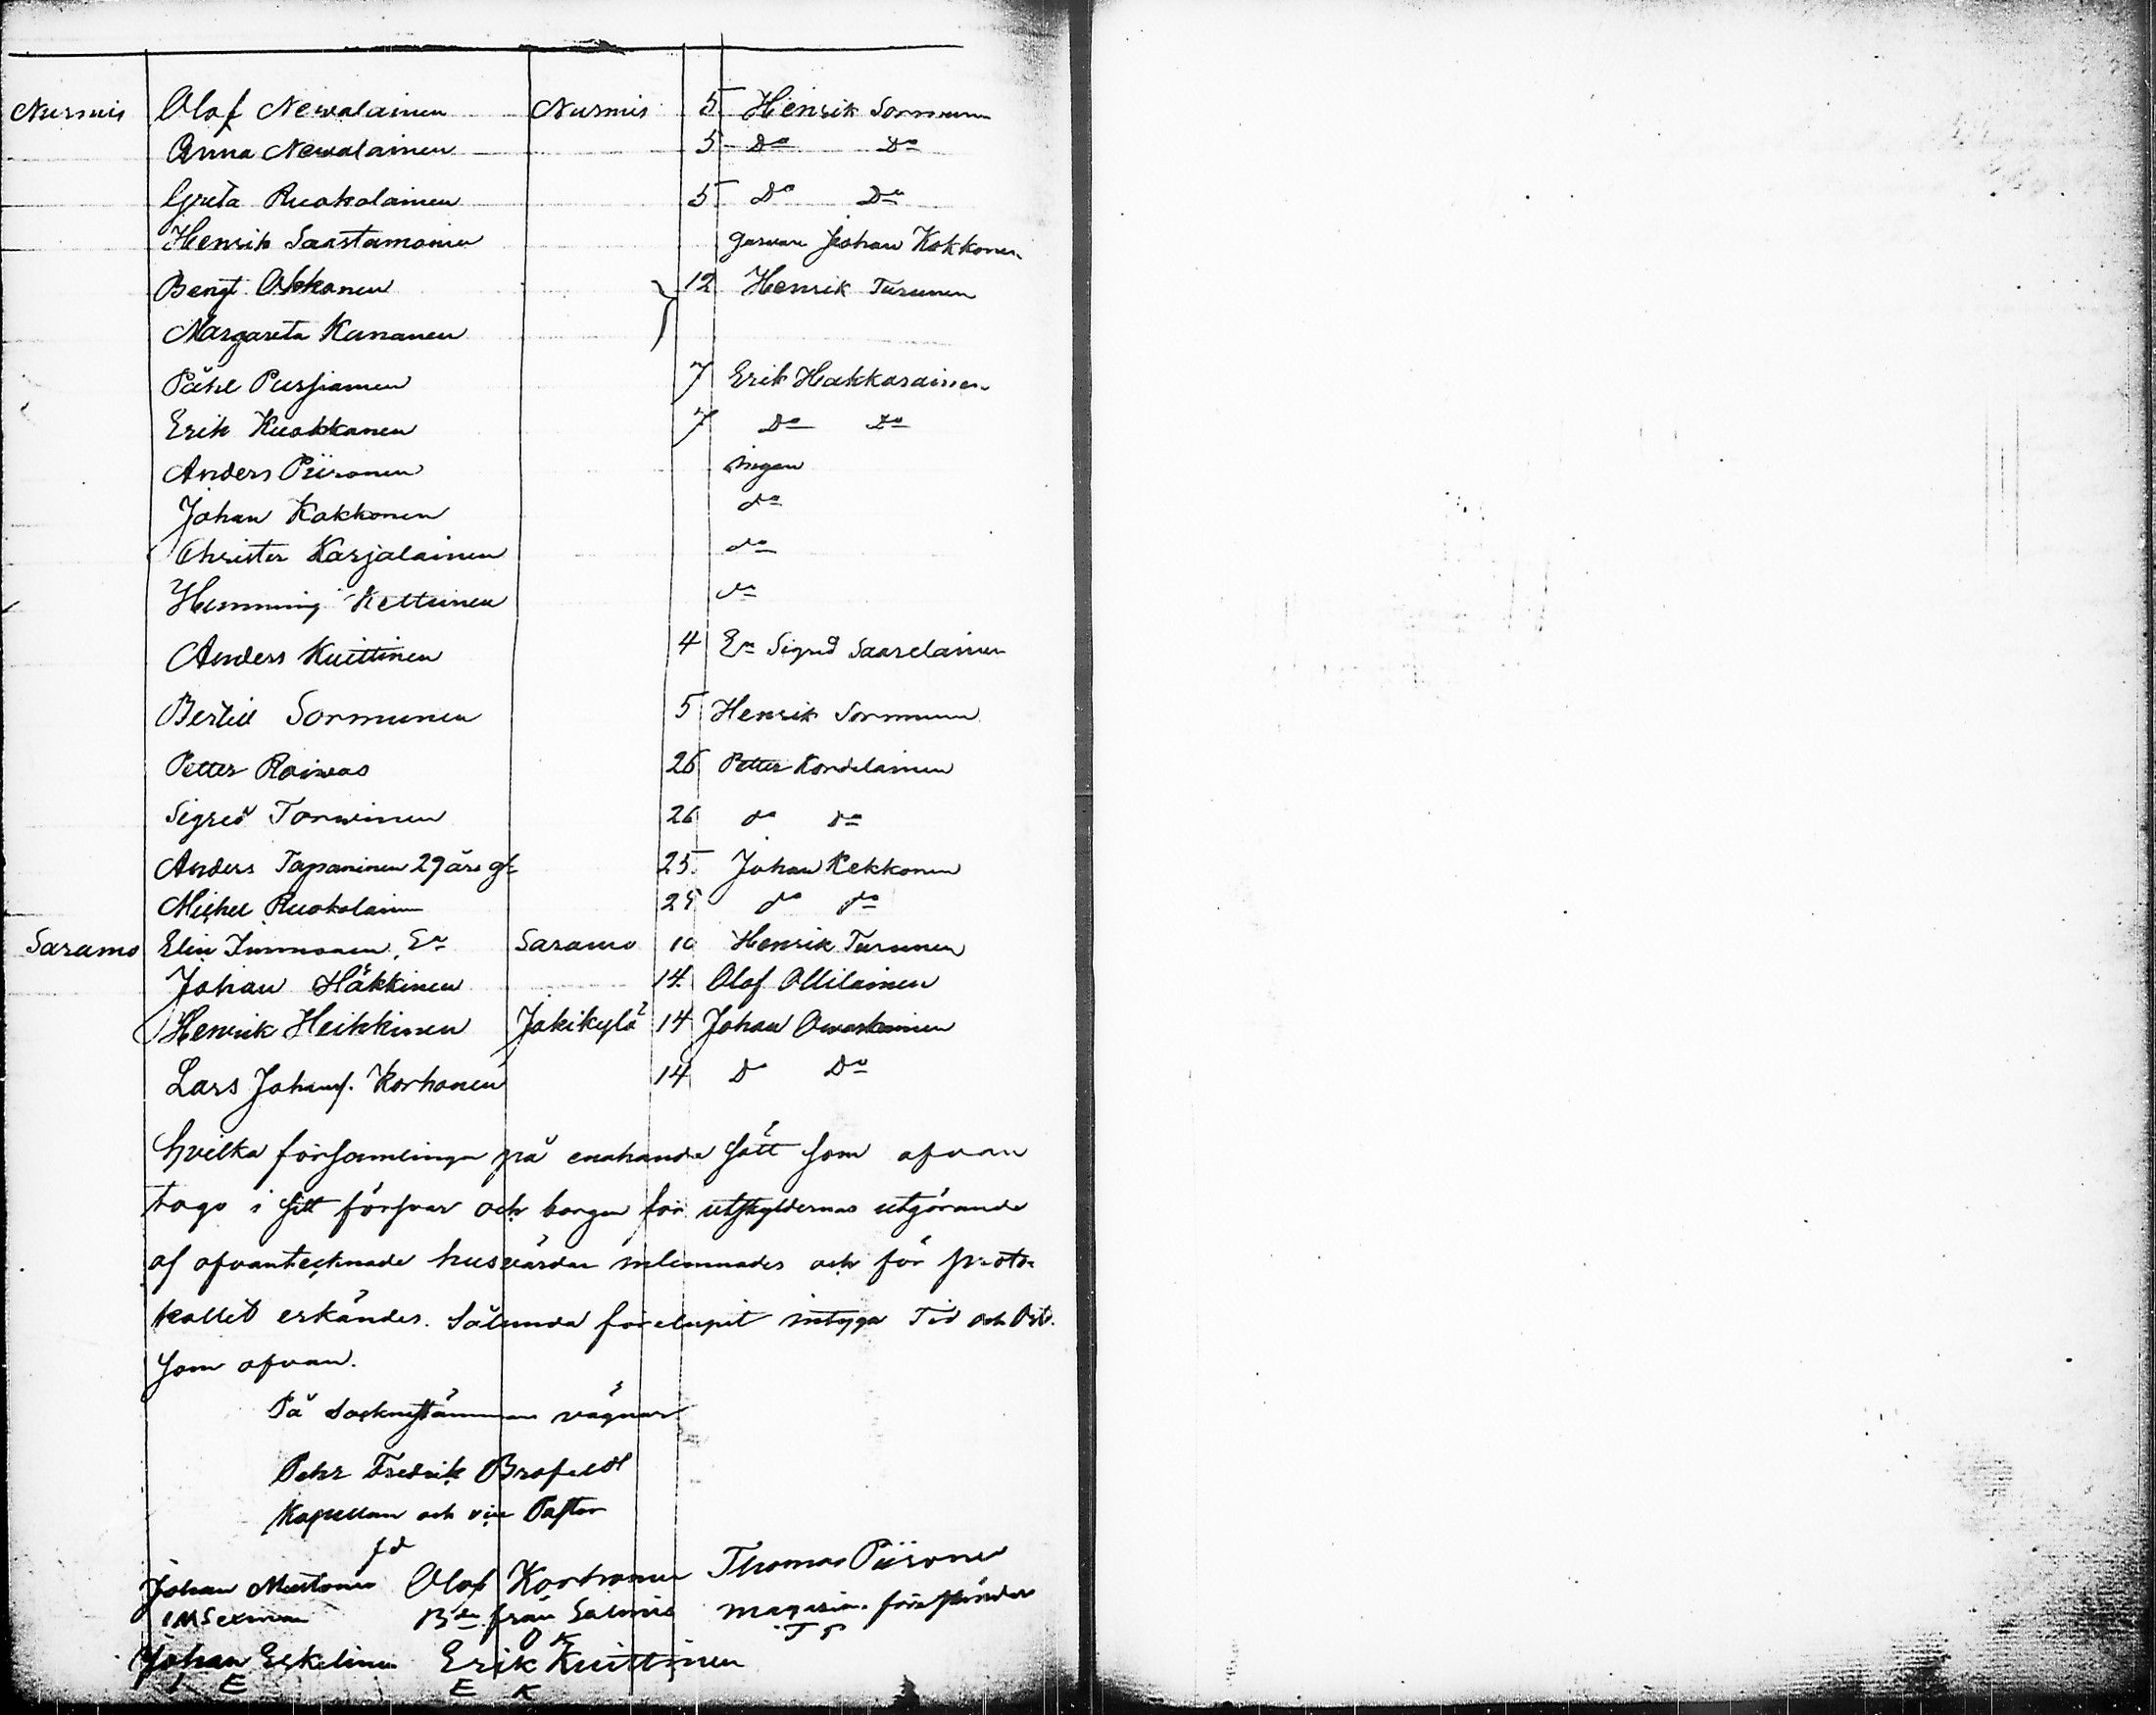 Nurmis Olof Newalainen Nurmis 5 Henrik Sormunen
Anna Newalainen 5 Do Do
Greta Ruokolainen 5 Do Do
Henrik Saastamoinen Johan Kokkonen
Bengt Okkonen } 12 Henrik Turunen
Margareta Kunanen
Påhl Pursiainen 7 Erik Hakkarainen
Erik Kuokkanen 7 Do Do
Anders Piironen ingen
Johan Kokkonen do
Christer Karjalainen do
Hemming Keltuinen do
Anders Kuittinen 4 En Sigrid Saarelainen
Bertill Sormunen 5 Henrik Sormunen
Petter Raiwas 26 Petter Kondelainen
Sigrid Tarwainen 26 do do
Anders Tapaninen 29 års gl 25 Johan Kekkonen
Michel Ruokolainen 25 do do
Saramo Elin Immonen En Saramo 10 Henrik Turunen
Johan Häkkinen 14 Olof Ollilainen
Henrik Heikkinen Jokikylä 14 Johan Owaskainen
Lars Johansf. Korhonen 14 D Do
hvilka församlingen på enahanda sätt som ofvan
togo i sitt försvar och borgen för utskyldernas utgörande
af ofvantecknade husvärdar inlemnades och för proto-
kollet erkändes. Sålunda förelupit intyga Tid och Ort
som ofvan.
På Socknestämmans vägnar
Pehr Fredrik Brofeldt
Kapellan och vice Pastor
fd
Johan Mustonen Olof Korhonen Thomas Piironen
Sexman Bde från Salmis magasins föreståndare
O K T P
Johan Eskelinen Erik Kuittinen
J E E K